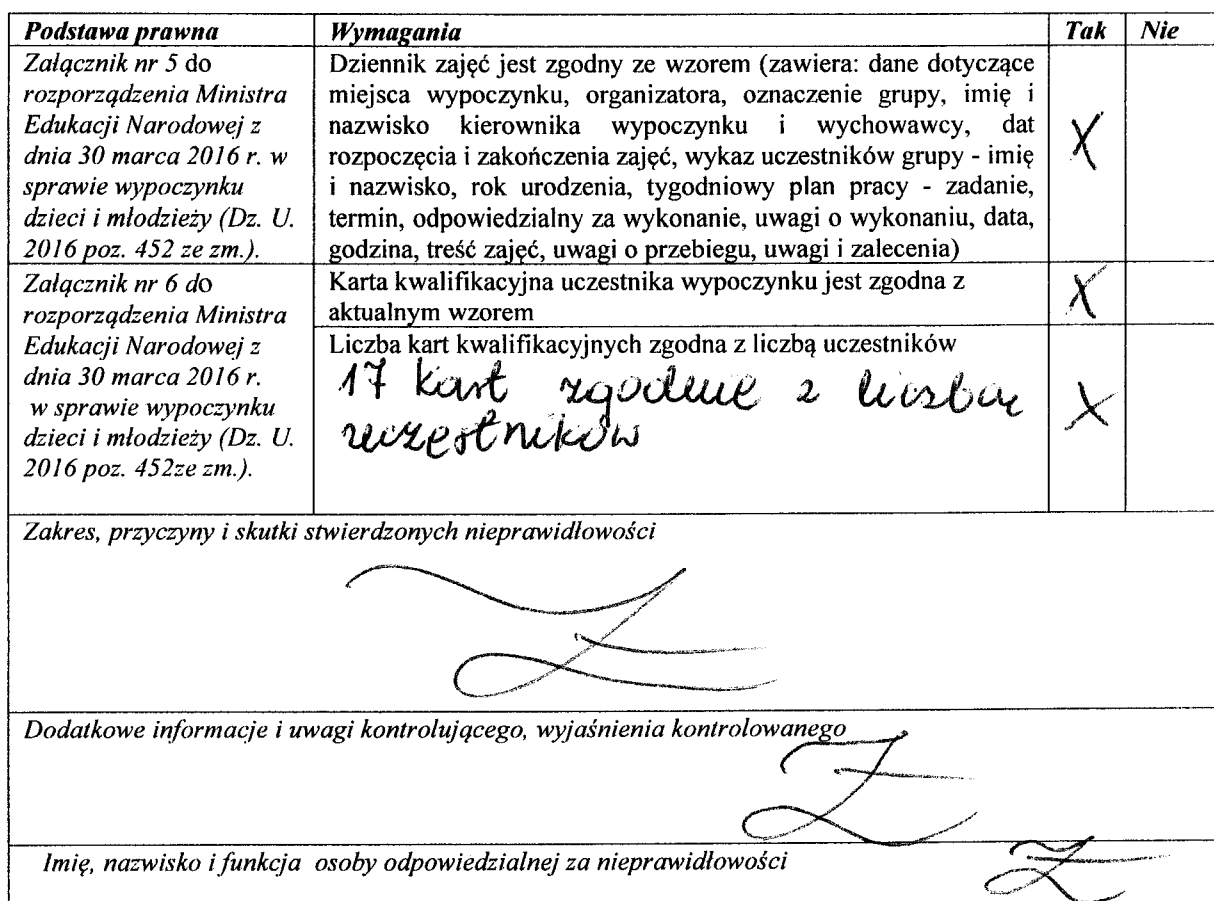 Podstawa prawna Wymagania Tak Nie
Załącznik nr 5 do
rozporządzenia Ministra
Edukacji Narodowej z
dnia 30 marca 2016 r. w
sprawie wypoczynku
dzieci i młodzieży (Dz. U.
2016 poz. 452 ze zm.).
Dziennik zajęć jest zgodny ze wzorem (zawiera: dane dotyczące
miejsca wypoczynku, organizatora, oznaczenie grupy, imię i
nazwisko kierownika wypoczynku i wychowawcy, dat
rozpoczęcia i zakończenia zajęć, wykaz uczestników grupy - imię
i nazwisko, rok urodzenia, tygodniowy plan pracy - zadanie,
termin, odpowiedzialny za wykonanie, uwagi o wykonaniu, data,
godzina, treść zajęć, uwagi o przebiegu, uwagi i zalecenia)
X
Załącznik nr 6 do
rozporządzenia Ministra
Edukacji Narodowej z
dnia 30 marca 2016 r.
w sprawie wypoczynku
dzieci i młodzieży (Dz. U.
2016 poz. 452ze zm.).
Karta kwalifikacyjna uczestnika wypoczynku jest zgodna z
aktualnym wzorem
X
Liczba kart kwalifikacyjnych zgodna z liczbą uczestników
17 kart zgodnie z liczbą
uczestników
X
Zakres, przyczyny i skutki stwierdzonych nieprawidłowości
Dodatkowe informacje i uwagi kontrolującego, wyjaśnienia kontrolowanego
Imię, nazwisko i funkcja osoby odpowiedzialnej za nieprawidłowości